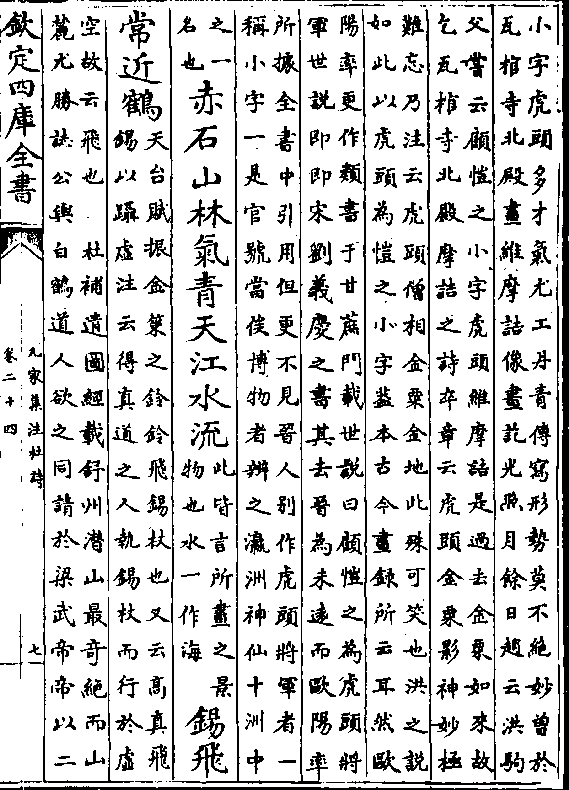 小字虎頭多才氣尤工丹青傳寫形勢莫不絶妙曽於
瓦棺寺北殿畫維摩詰像畫訖光照月餘日趙云洪駒
父嘗云顧愷之小字虎頭維摩詰是過去金粟如來故
乞瓦棺寺北殿摩詰之詩卒章云虎頭金粟影神妙極
難忘乃注云虎頭僧相金粟金地此殊可笑也洪之說
如此以虎頭為愷之小字葢本古今畫録所云耳然歐
陽率更作類書于甘蔗門載世說曰顧愷之為虎頭將
軍世說即即宋劉義慶之書其去晉為未逺而歐陽率
所據全書中引用但更不見晉人别作虎頭將軍者一
稱小字一是官號當俟博物者辨之瀛洲神仙十洲中
之一
名也
赤石山林氣青天江水流
此皆言所畫之景
物也水一作海
錫飛
常近鶴
天台賦振金策之鈴鈴飛錫杖也又云髙真飛
錫以躡虚注云得真道之人執錫杖而行於虚
空故云飛也 杜補遺圖經載舒州潜山最奇絶而山
麓尤勝誌公與白鶴道人欲之同請於梁武帝帝以二
欽定四庫全書
九家集注杜詩
卷二十四
七